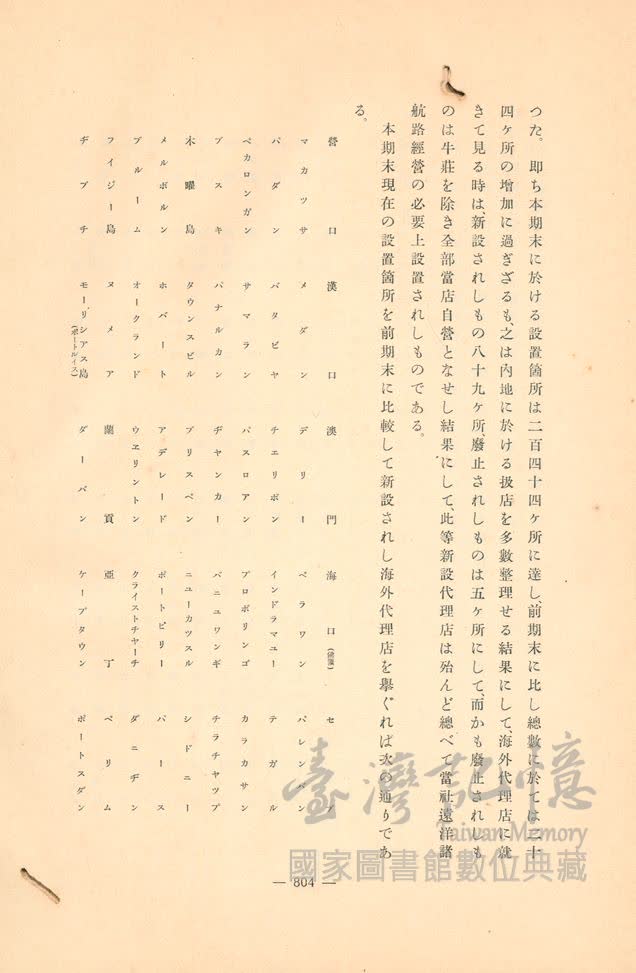 つた。即ち本期末に於ける設置箇所は二百四十四ヶ所に達し、前期末に比し總數に於ては二十
四ヶ所の増加に過ぎざるも、之は内地に於ける扱店を多數整理せる結果にして、海外代理店に就
きて見る時は、新設されしもの八十九ヶ所、廢止されしものは五ヶ所にして、而かも廢止されしも
のは牛莊を除き全部當店自營となせし結果にして、此等新設代理店は殆んど總べて當社遠洋諸
航路經營の必要上設置されしものである。
本期末現在の設置箇所を前期末に比較して新設されし海外代理店を擧ぐれば次の通りであ
る。
營口 漢口 澳門 海口 セブ
マカツサ メダン デリー ベラワン パレンバン
パダン バタビヤ チエリボン インドラマユー テガル
ペカロンガン サマラン パスロアン プロボリンゴ カラカサン
ブスキ パナルカン ヂヤンカー バニユワンギ チラチヤツプ
木曜島 タウンスビル ブリスベン ニユーカツスル シドニー
メルボルン ホバート アデレード ポートピリー パース
ブルーム オークランド ウエリントン クライストチヤーチ ダニヂン
フイジー島 ヌメア 蘭貢 亞丁 ペリム
ヂブチ モーリシアス島(ポートルイス) ダーバン ケープタウン ポートスダン
— 804 —
臺灣記憶
Taiwan Memory
國家圖書館數位典藏